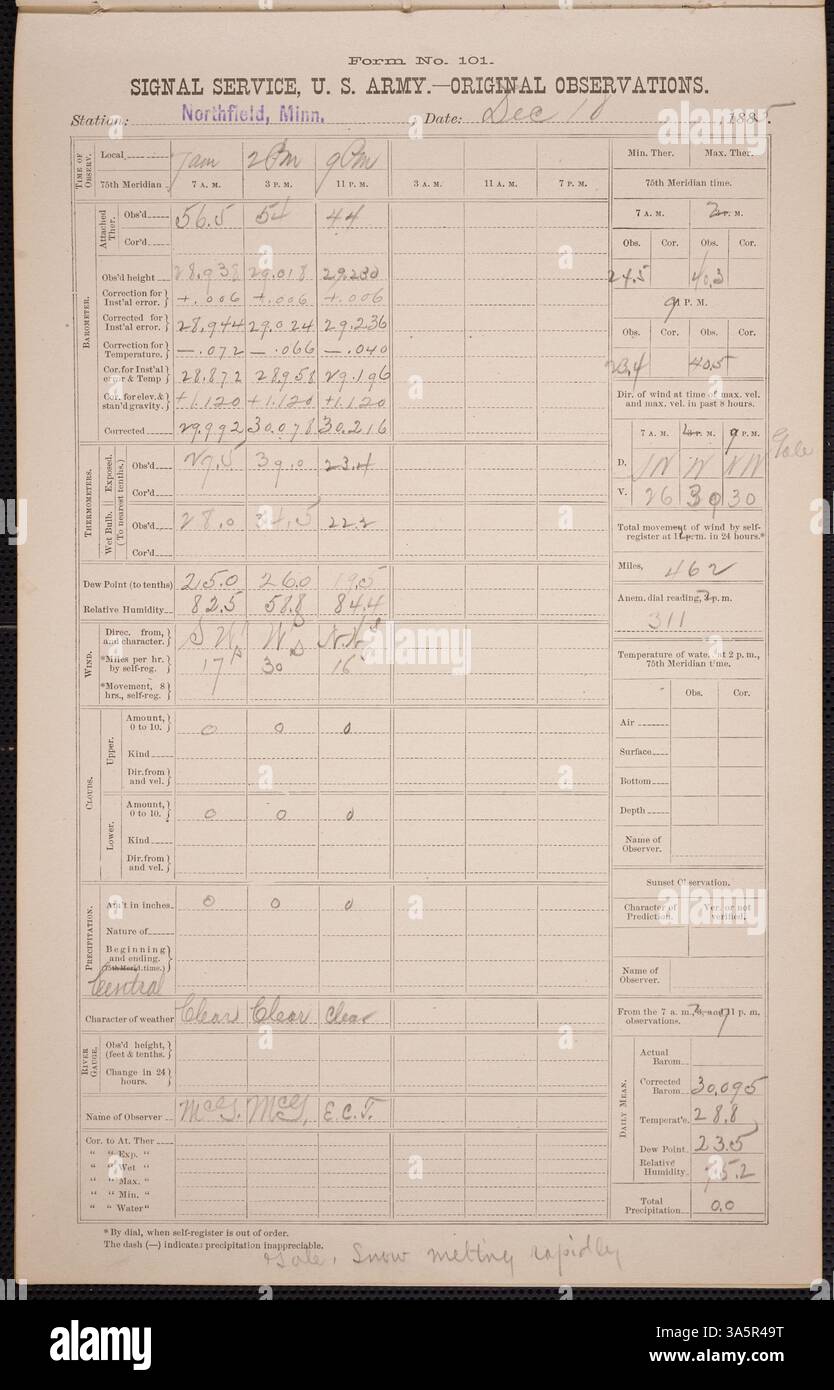 Form No. 101.
SIGNAL SERVICE, U. S. ARMY.—ORIGINAL OBSERVATIONS.
Station: Northfield, Minn. , Date: Dec 18 , 1885.
TIME OF OBSERV.
Local 7 am 2 Pm 9 Pm
75th Meridian 7 A. M. 3 P. M. 11 P. M. 3 A. M. 11 A. M. 7 P. M.
BAROMETER.
Attached Ther.
Obs'd 56.5 54 44
Cor'd
Obs'd height 28.938 29.018 29.230
Correction for Inst'al error. +.006 +.006 +.006
Corrected for Inst'al error. 28.944 29.024 29.236
Correction for Temperature. —.072 —.066 —.040
Cor. for Inst'al error & Temp 28.872 28.958 29.196
Cor. for elev. & stan'd gravity. +1.120 +1.120 +1.120
Corrected 29.992 30.078 30.216
THERMOMETERS.
(To nearest tenths.)
Exposed.
Obs'd 27.5 39.0 23.4
Cor'd
Wet Bulb.
Obs'd 28.0 34.5 22.2
Cor'd
Dew Point (to tenths) 25.0 26.0 19.5
Relative Humidity 82.5 58.8 84.4
WIND.
Direc. from, and character. S W W N.W
*Miles per hr. by self-reg. 17 30 16
*Movement, 8 hrs., self-reg.
CLOUDS.
Upper.
Amount, 0 to 10. 0 0 0
Kind
Dir. from and vel.
Lower.
Amount, 0 to 10. 0 0 0
Kind
Dir. from and vel.
PRECIPITATION.
Am't in inches. 0 0 0
Nature of
Beginning and ending.
75th Merid. time.)
Central
Character of weather Clear Clear clear
RIVER GAUGE.
Obs'd height, (feet & tenths.
Change in 24 hours.
Name of Observer McG. McG. E.C.T.
Cor. to At. Ther
" " Exp. "
" " Wet "
" " Max. "
" " Min. "
" " Water"
*By dial, when self-register is out of order.
The dash (—) indicates precipitation inappreciable.
Gale. Snow melting rapidly
Min. Ther. Max. Ther.
75th Meridian time.
7 A. M. 2 P. M.
Obs. Cor. Obs. Cor.
24.5 40.3
9 P. M.
Obs. Cor. Obs. Cor.
23.4 40.5
Dir. of wind at time of max. vel. and max. vel. in past 8 hours.
7 A. M. P. M. 9 P. M.
Gale
D. W W NW
V. 26 39 30
Total movement of wind by self-register at 11 p. m. in 24 hours.*
Miles, 462
Anem. dial reading, p. m.
311
Temperature of water at 2 p. m., 75th Meridian time.
Obs. Cor.
Air
Surface
Bottom
Depth
Name of Observer.
Sunset Observation.
Character of Prediction. Ver. or not verified.
Name of Observer.
From the 7 a. m., 3, and 11 p. m. observations.
DAILY MEAN.
Actual Barom.
Corrected Barom. 30.095
Temperat'e. 28.8
Dew Point. 23.5
Relative Humidity. 75.2
Total Precipitation. 0.0
alamy
Image ID: 3A5R49T
www.alamy.com